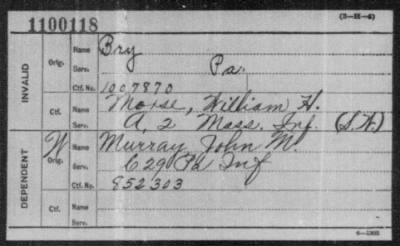 (3-H-4)
1100118
INVALID
Orig.
Name Bry
Serv. Pa.
Ctf. No. 1007870
Ctf.
Name Morse, William H.
Serv. A, 2 Mass. Inf.
DEPENDENT
W
Orig.
Name Murray John M.
Serv. C 29 Pa Inf
Ctf. No. 852303
Ctf.
Name
Serv.